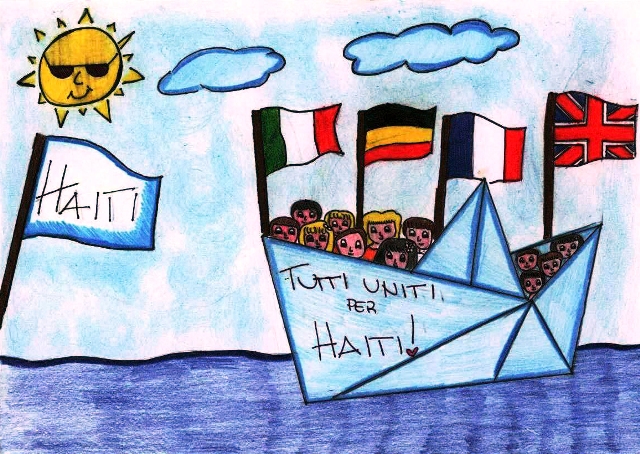 HAITI
TUTTI UNITI
PER
HAITI!